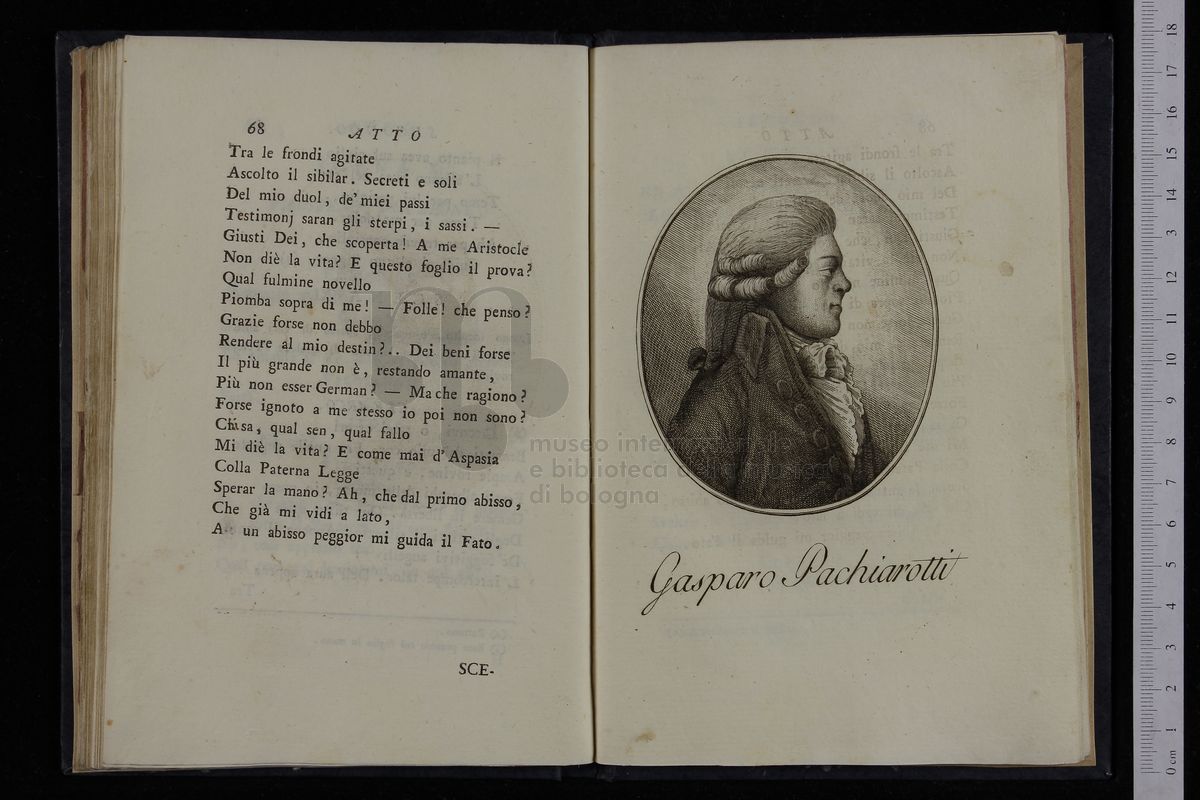 68 ATTO
Tra le frondi agitate
Ascolto il sibilar. Secreti e soli
Del mio duol, de' miei passi
Testimonj saran gli sterpi, i sassi. —
Giusti Dei, che scoperta! A me Aristocle
Non diè la vita? E questo foglio il prova?
Qual fulmine novello
Piomba sopra di me! — Folle! che penso?
Grazie forse non debbo
Rendere al mio destin?.. Dei beni forse
Il più grande non è, restando amante,
Più non esser German? — Ma che ragiono?
Forse ignoto a me stesso io poi non sono?
Chi sa, qual sen, qual fallo
Mi diè la vita? E come mai d'Aspasia
Colla Paterna Legge
Sperar la mano? Ah, che dal primo abisso,
Che già mi vidi a lato,
A un abisso peggior mi guida il Fato.
SCE-
Gasparo Pachiarotti
museo internazionale
e biblioteca della musica
di bologna
0 cm 1 2 3 4 5 6 7 8 9 10 11 12 13 14 15 16 17 18